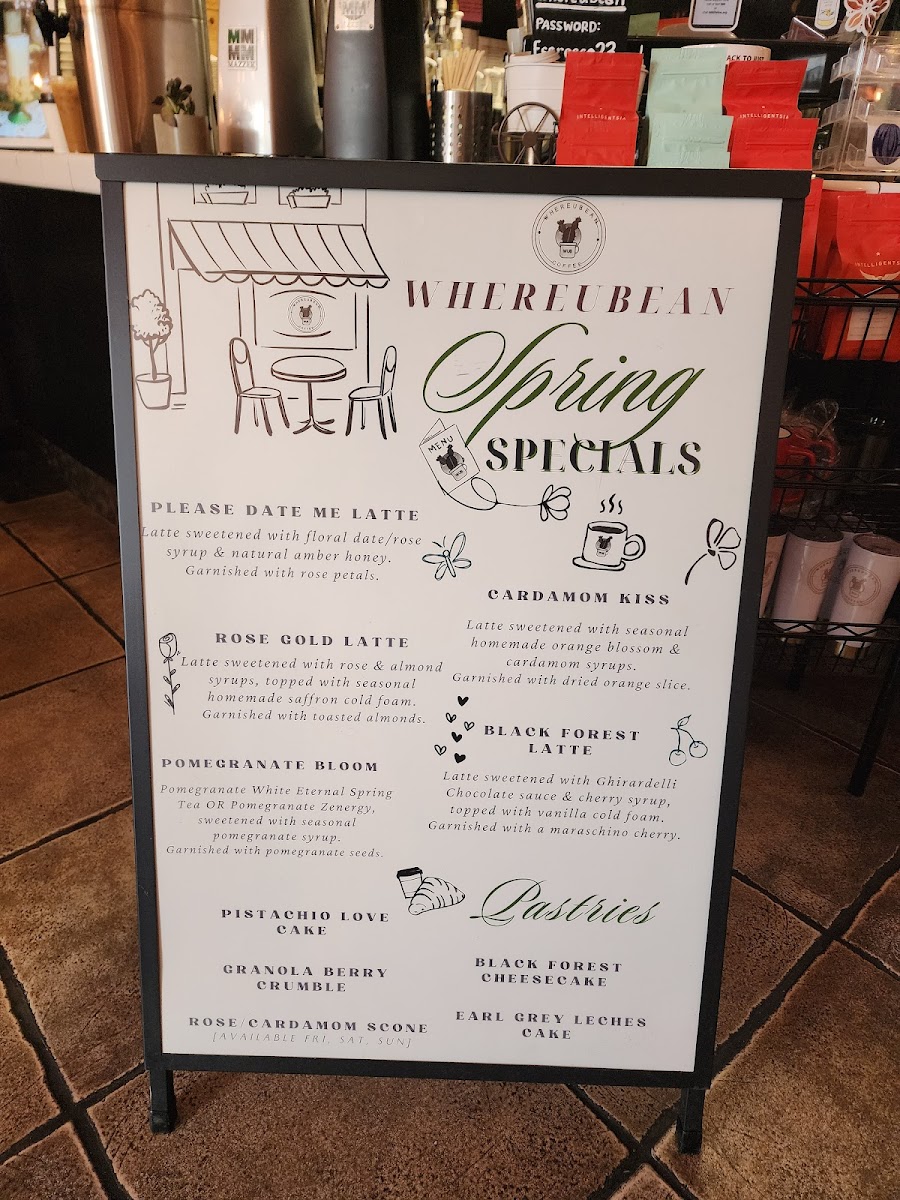 PASSWORD:
Espresso22
MM
MM
MAZZER
ACK TO JU
INTELLIGENTSIA
INTELLIGENTSIA
INTELLIGENTSIA
WHEREUBEAN
WUB
COFFEE
WHEREUBEAN
Spring
SPECIALS
MENU
PLEASE DATE ME LATTE
Latte sweetened with floral date/rose
syrup & natural amber honey.
Garnished with rose petals.
ROSE GOLD LATTE
Latte sweetened with rose & almond
syrups, topped with seasonal
homemade saffron cold foam.
Garnished with toasted almonds.
POMEGRANATE BLOOM
Pomegranate White Eternal Spring
Tea OR Pomegranate Zenergy,
sweetened with seasonal
pomegranate syrup.
Garnished with pomegranate seeds.
CARDAMOM KISS
Latte sweetened with seasonal
homemade orange blossom &
cardamom syrups.
Garnished with dried orange slice.
BLACK FOREST
LATTE
Latte sweetened with Ghirardelli
Chocolate sauce & cherry syrup,
topped with vanilla cold foam.
Garnished with a maraschino cherry.
Pastries
PISTACHIO LOVE
CAKE
GRANOLA BERRY
CRUMBLE
ROSE/CARDAMOM SCONE
[AVAILABLE FRI, SAT, SUN]
BLACK FOREST
CHEESECAKE
EARL GREY LECHES
CAKE